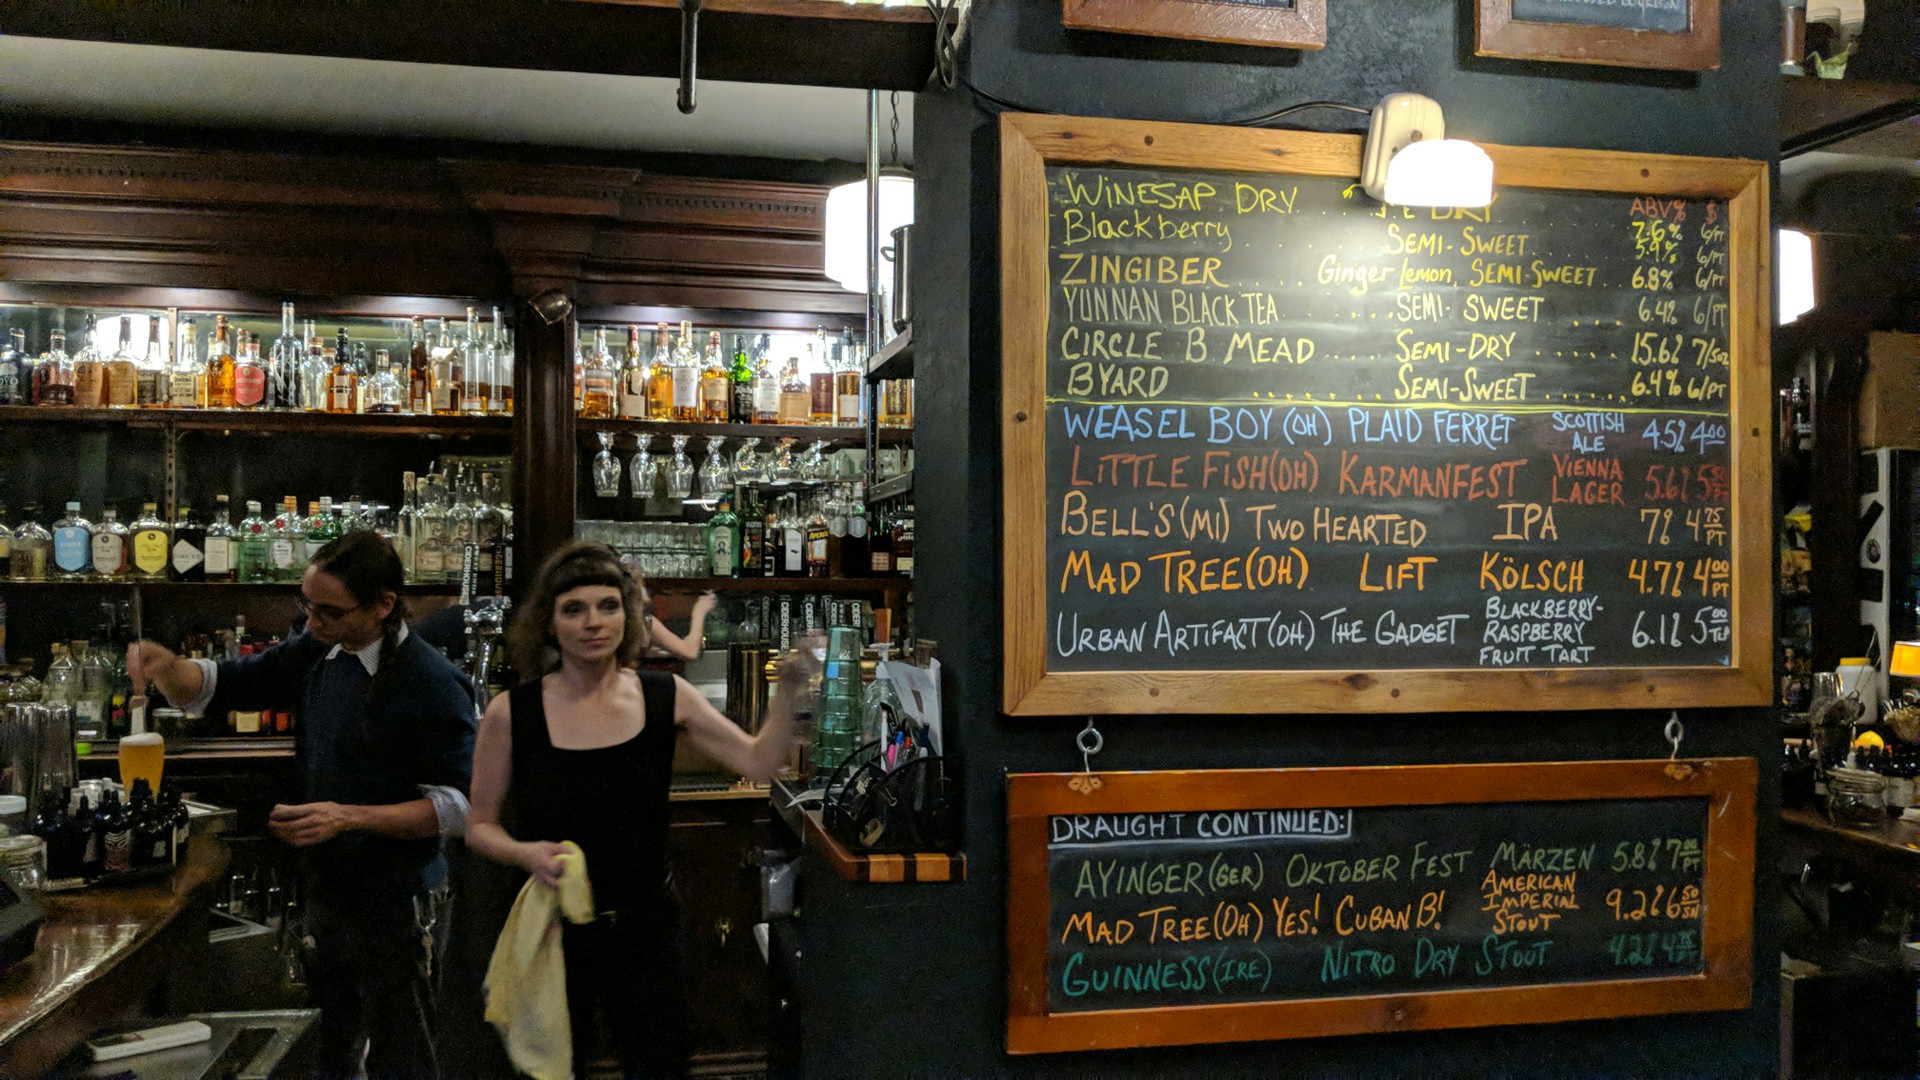 WINESAP DRY DRY ABV% $
Blackberry SEMI-SWEET 7.6% 6/PT
5.9% 6/PT
ZINGIBER Ginger Lemon, SEMI-SWEET 6.8% 6/PT
YUNNAN BLACK TEA SEMI-SWEET 6.4% 6/PT
CIRCLE B MEAD SEMI-DRY 15.6% 7/5oz
BYARD SEMI-SWEET 6.4% 6/PT
WEASEL BOY (OH) PLAID FERRET SCOTTISH ALE 4.5% 4.00
LITTLE FISH (OH) KARMANFEST VIENNA LAGER 5.6%
BELL'S (MI) TWO HEARTED IPA 7% 4.75 PT
MAD TREE (OH) LIFT KÖLSCH 4.7% 4.00 PT
URBAN ARTIFACT (OH) THE GADGET BLACKBERRY-RASPBERRY FRUIT TART 6.1% 5.00 TLP
DRAUGHT CONTINUED:
AYINGER (GER) OKTOBER FEST MÄRZEN 5.8% 7.00 PT
MAD TREE (OH) YES! CUBAN B! AMERICAN IMPERIAL STOUT 9.2% 6.50 SN
GUINNESS (IRE) NITRO DRY STOUT 4.2%